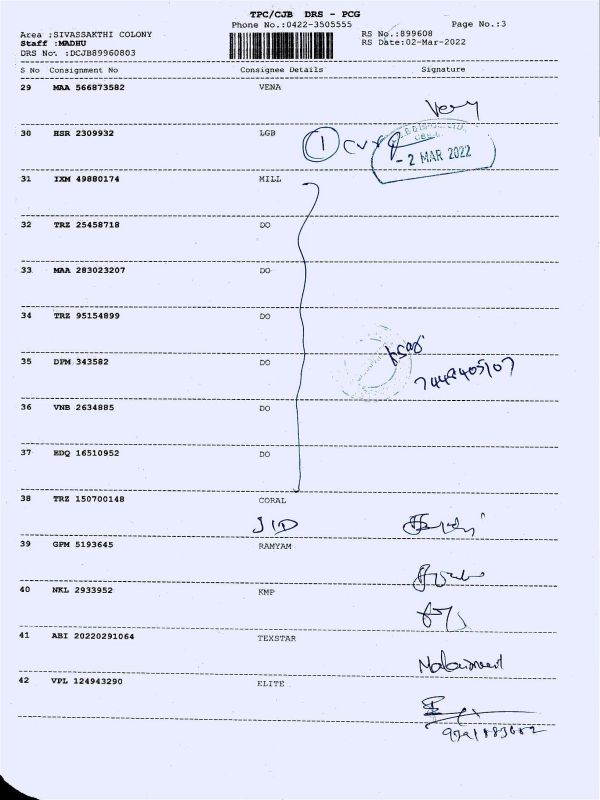 TPC/CJB DRS - PCG
Phone No.:0422-3505555 Page No.:3
Area :SIVASSAKTHI COLONY RS No.:899608
Staff :MADHU RS Date:02-Mar-2022
DRS No. :DCJB89960803
S No Consignment No Consignee Details Signature
29 MAA 566873582 VENA
30 HSR 2309932 LGB
1
- 2 MAR 2022
31 IXM 49880174 MILL
32 TRZ 25458718 DO
33 MAA 283023207 DO
34 TRZ 95154899 DO
35 DPM 343582 DO
36 VNB 2634885 DO
37 EDQ 16510952 DO
38 TRZ 150700148 CORAL
39 GPM 5193645 RAMYAM
40 NKL 2933952 KMP
41 ABI 20220291064 TEXSTAR
42 VPL 124943290 ELITE